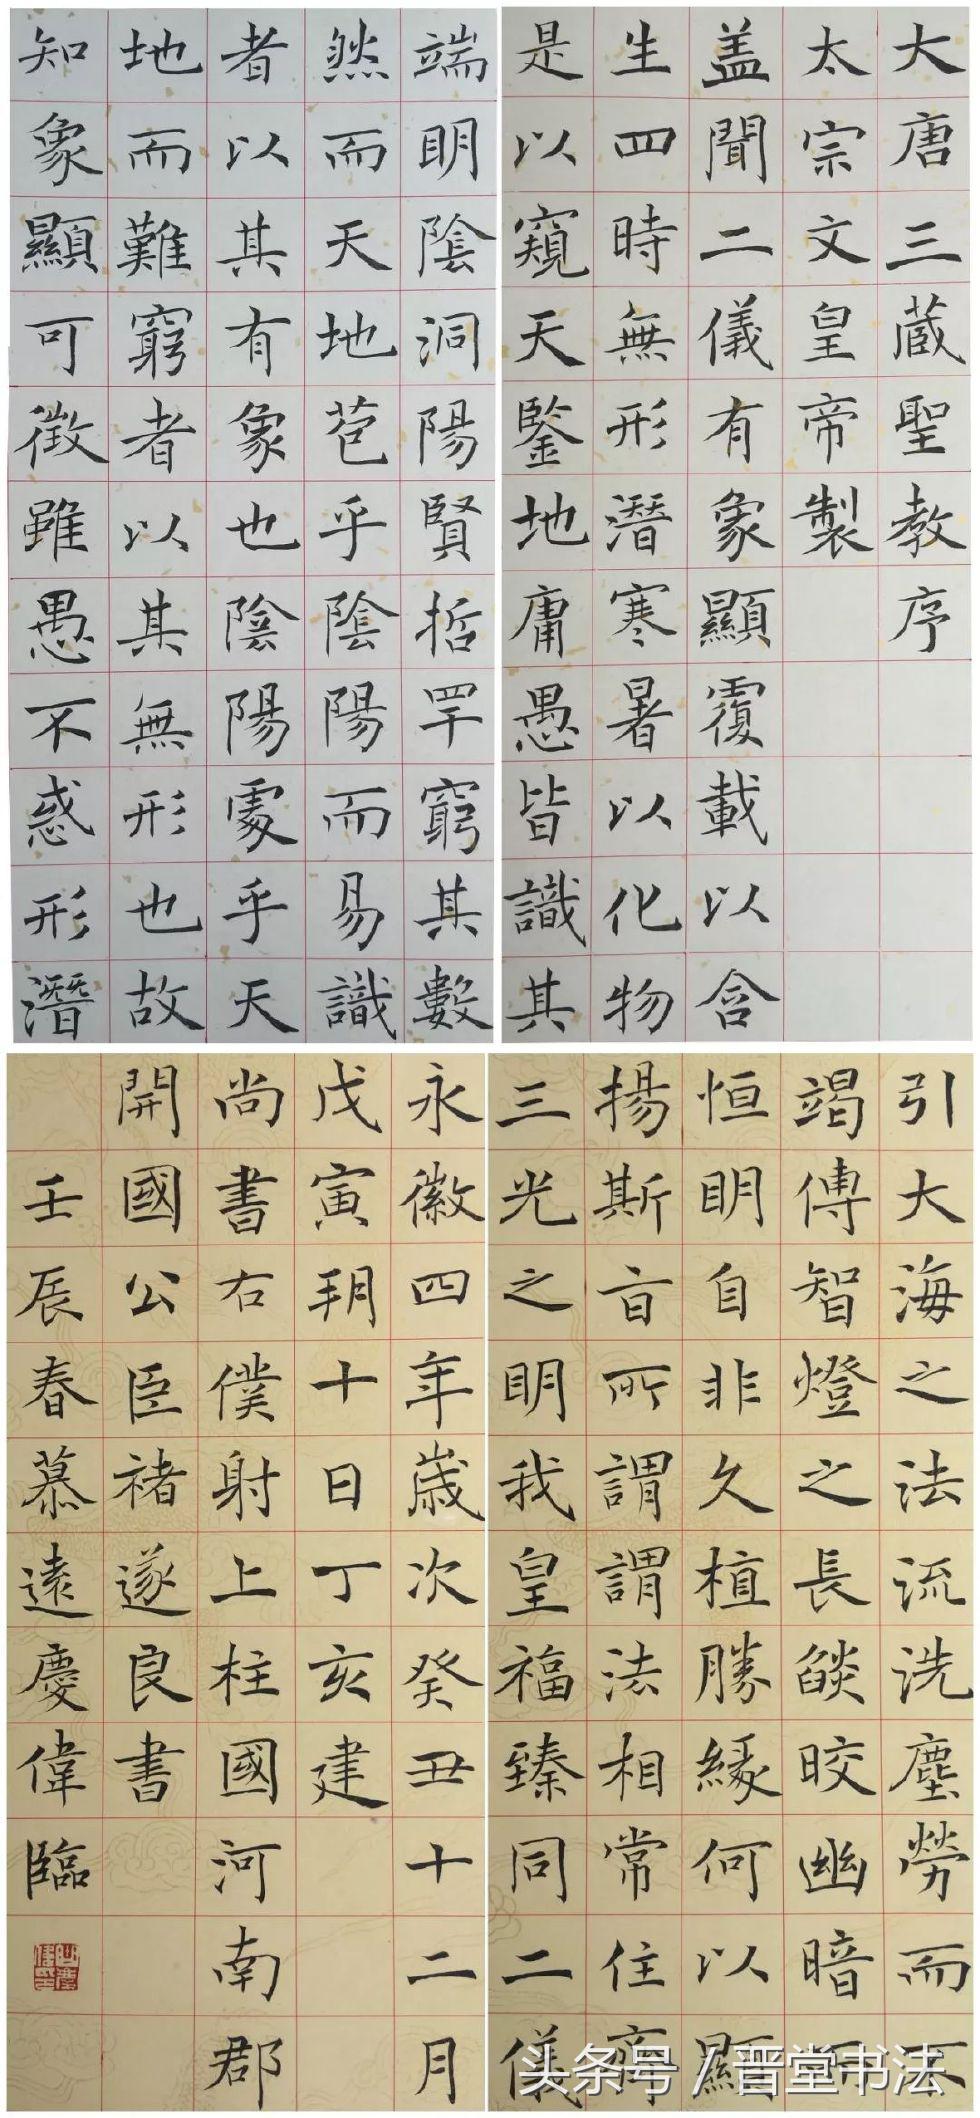 大唐三蔵聖教序
太宗文皇帝製
盖聞二儀有象顯覆載以含
生四時無形潛寒暑以化物
是以窺天鑒地庸愚皆識其
端明陰洞陽賢哲罕窮其數
然而天地苞乎陰陽而易識
者以其有象也陰陽處乎天
地而難窮者以其無形也故
知象顯可徵雖愚不惑形潛
引大海之法流洗塵勞而不
竭傳智燈之長焰皎幽暗而
恒明自非久植勝緣何以顯
揚斯旨所謂謂法相常住齊
三光之明我皇福臻同二儀
永徽四年歲次癸丑十二月
戊寅朔十日丁亥建
尚書右僕射上柱國河南郡
開國公臣褚遂良書
壬辰春慕遠慶偉臨
头条号/晋堂书法